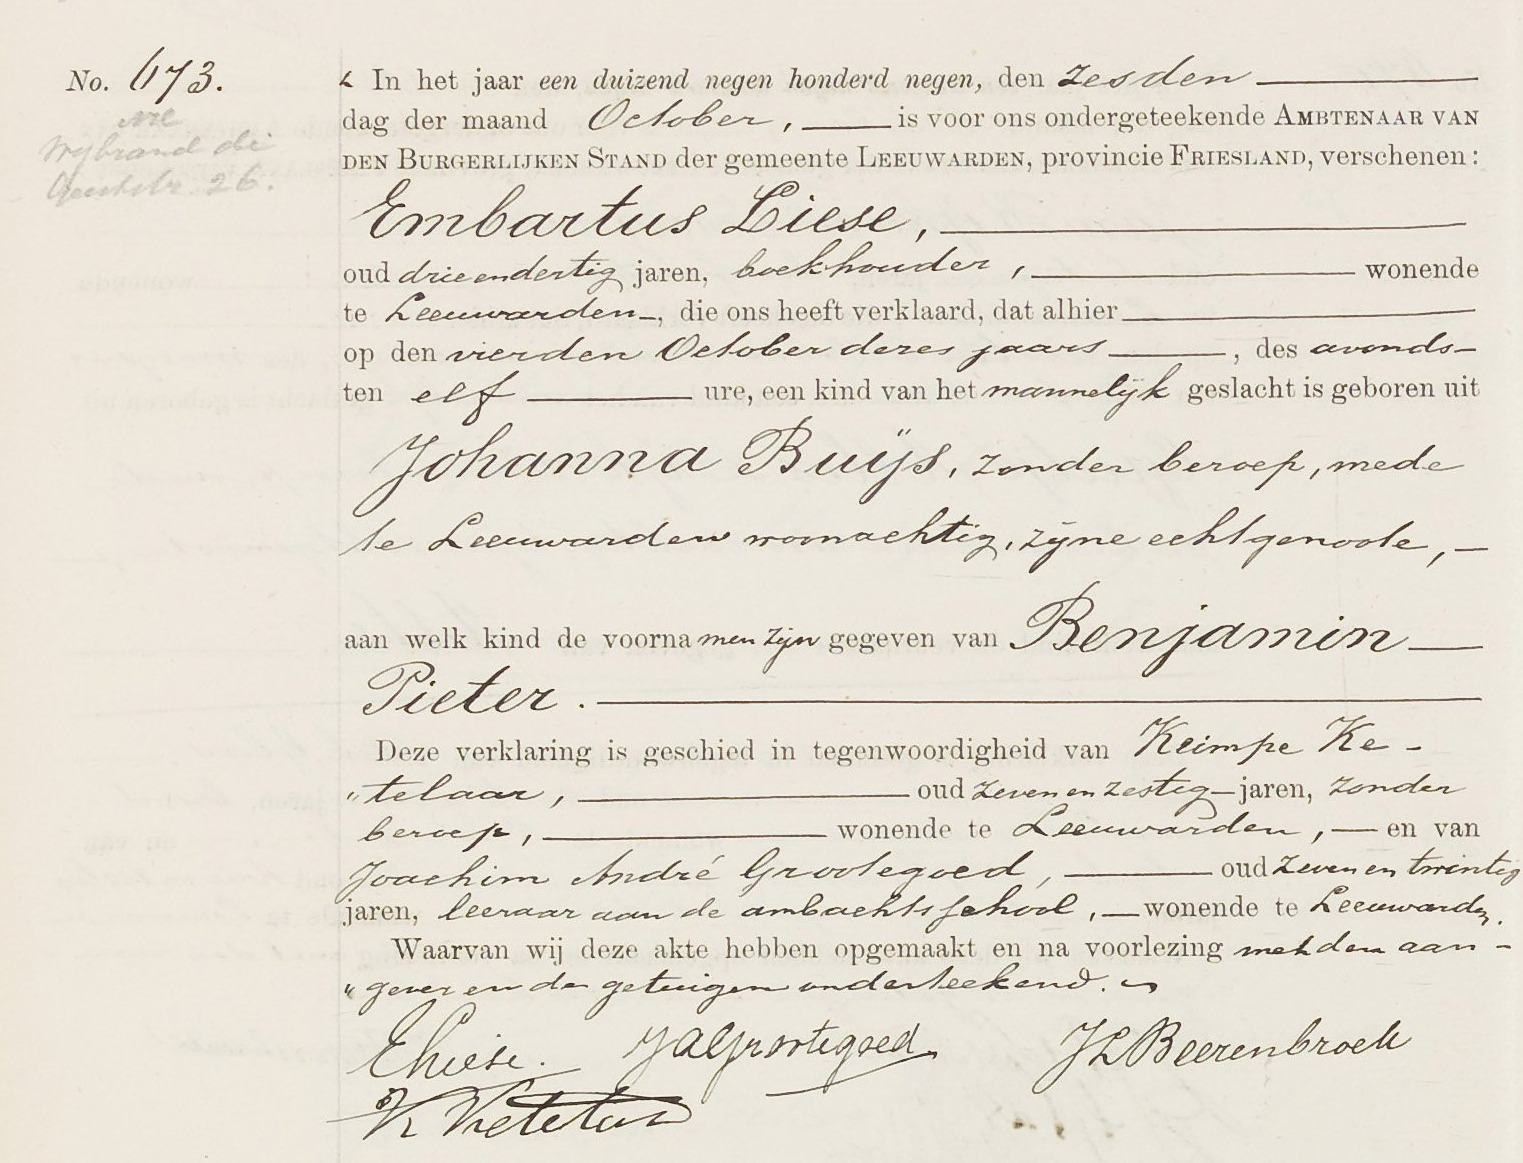 No. 673.
Wybrand de
Geeststr. 26.
In het jaar een duizend negen honderd negen, den zesden
dag der maand October, is voor ons ondergeteekende AMBTENAAR VAN
DEN BURGERLIJKEN STAND der gemeente LEEUWARDEN, provincie FRIESLAND, verschenen:
Embartus Liese,
oud drieendertig jaren, boekhouder, wonende
te Leeuwarden, die ons heeft verklaard, dat alhier
op den vierden October dezes jaars, des avonds
ten elf ure, een kind van het mannelijk geslacht is geboren uit
Johanna Buijs, zonder beroep, mede
te Leeuwarden woonachtig, zijne echtgenoote,
aan welk kind de voornamen zijn gegeven van Benjamin
Pieter.
Deze verklaring is geschied in tegenwoordigheid van Keimpe Ke-
"telaar, oud zeven en zestig jaren, zonder
beroep, wonende te Leeuwarden, en van
Joachim André Grootegoed, oud zeven en twintig
jaren, leeraar aan de ambachtsschool, wonende te Leeuwarden.
Waarvan wij deze akte hebben opgemaakt en na voorlezing met den aan-
"gever en de getuigen onderteekend.
ELiese. JAGrootegoed JLBeerenbroek
K Ketelaar